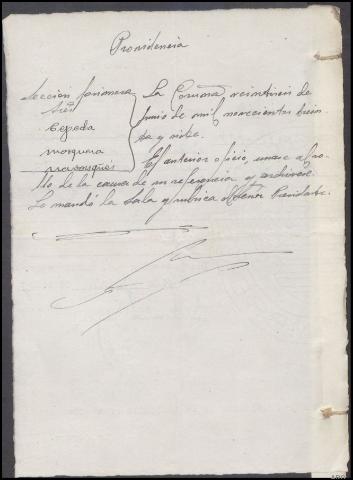 Providencia
Seccion primera
Sres
Cepeda
Mosquera
La Coruña veintiseis de
Junio de mil novecientos trein-
ta y nueve.
El anterior oficio, unase al ro-
llo de la causa de su referencia y archivese.
Lo mandó la Sala y rubrica el Señor Presidente.